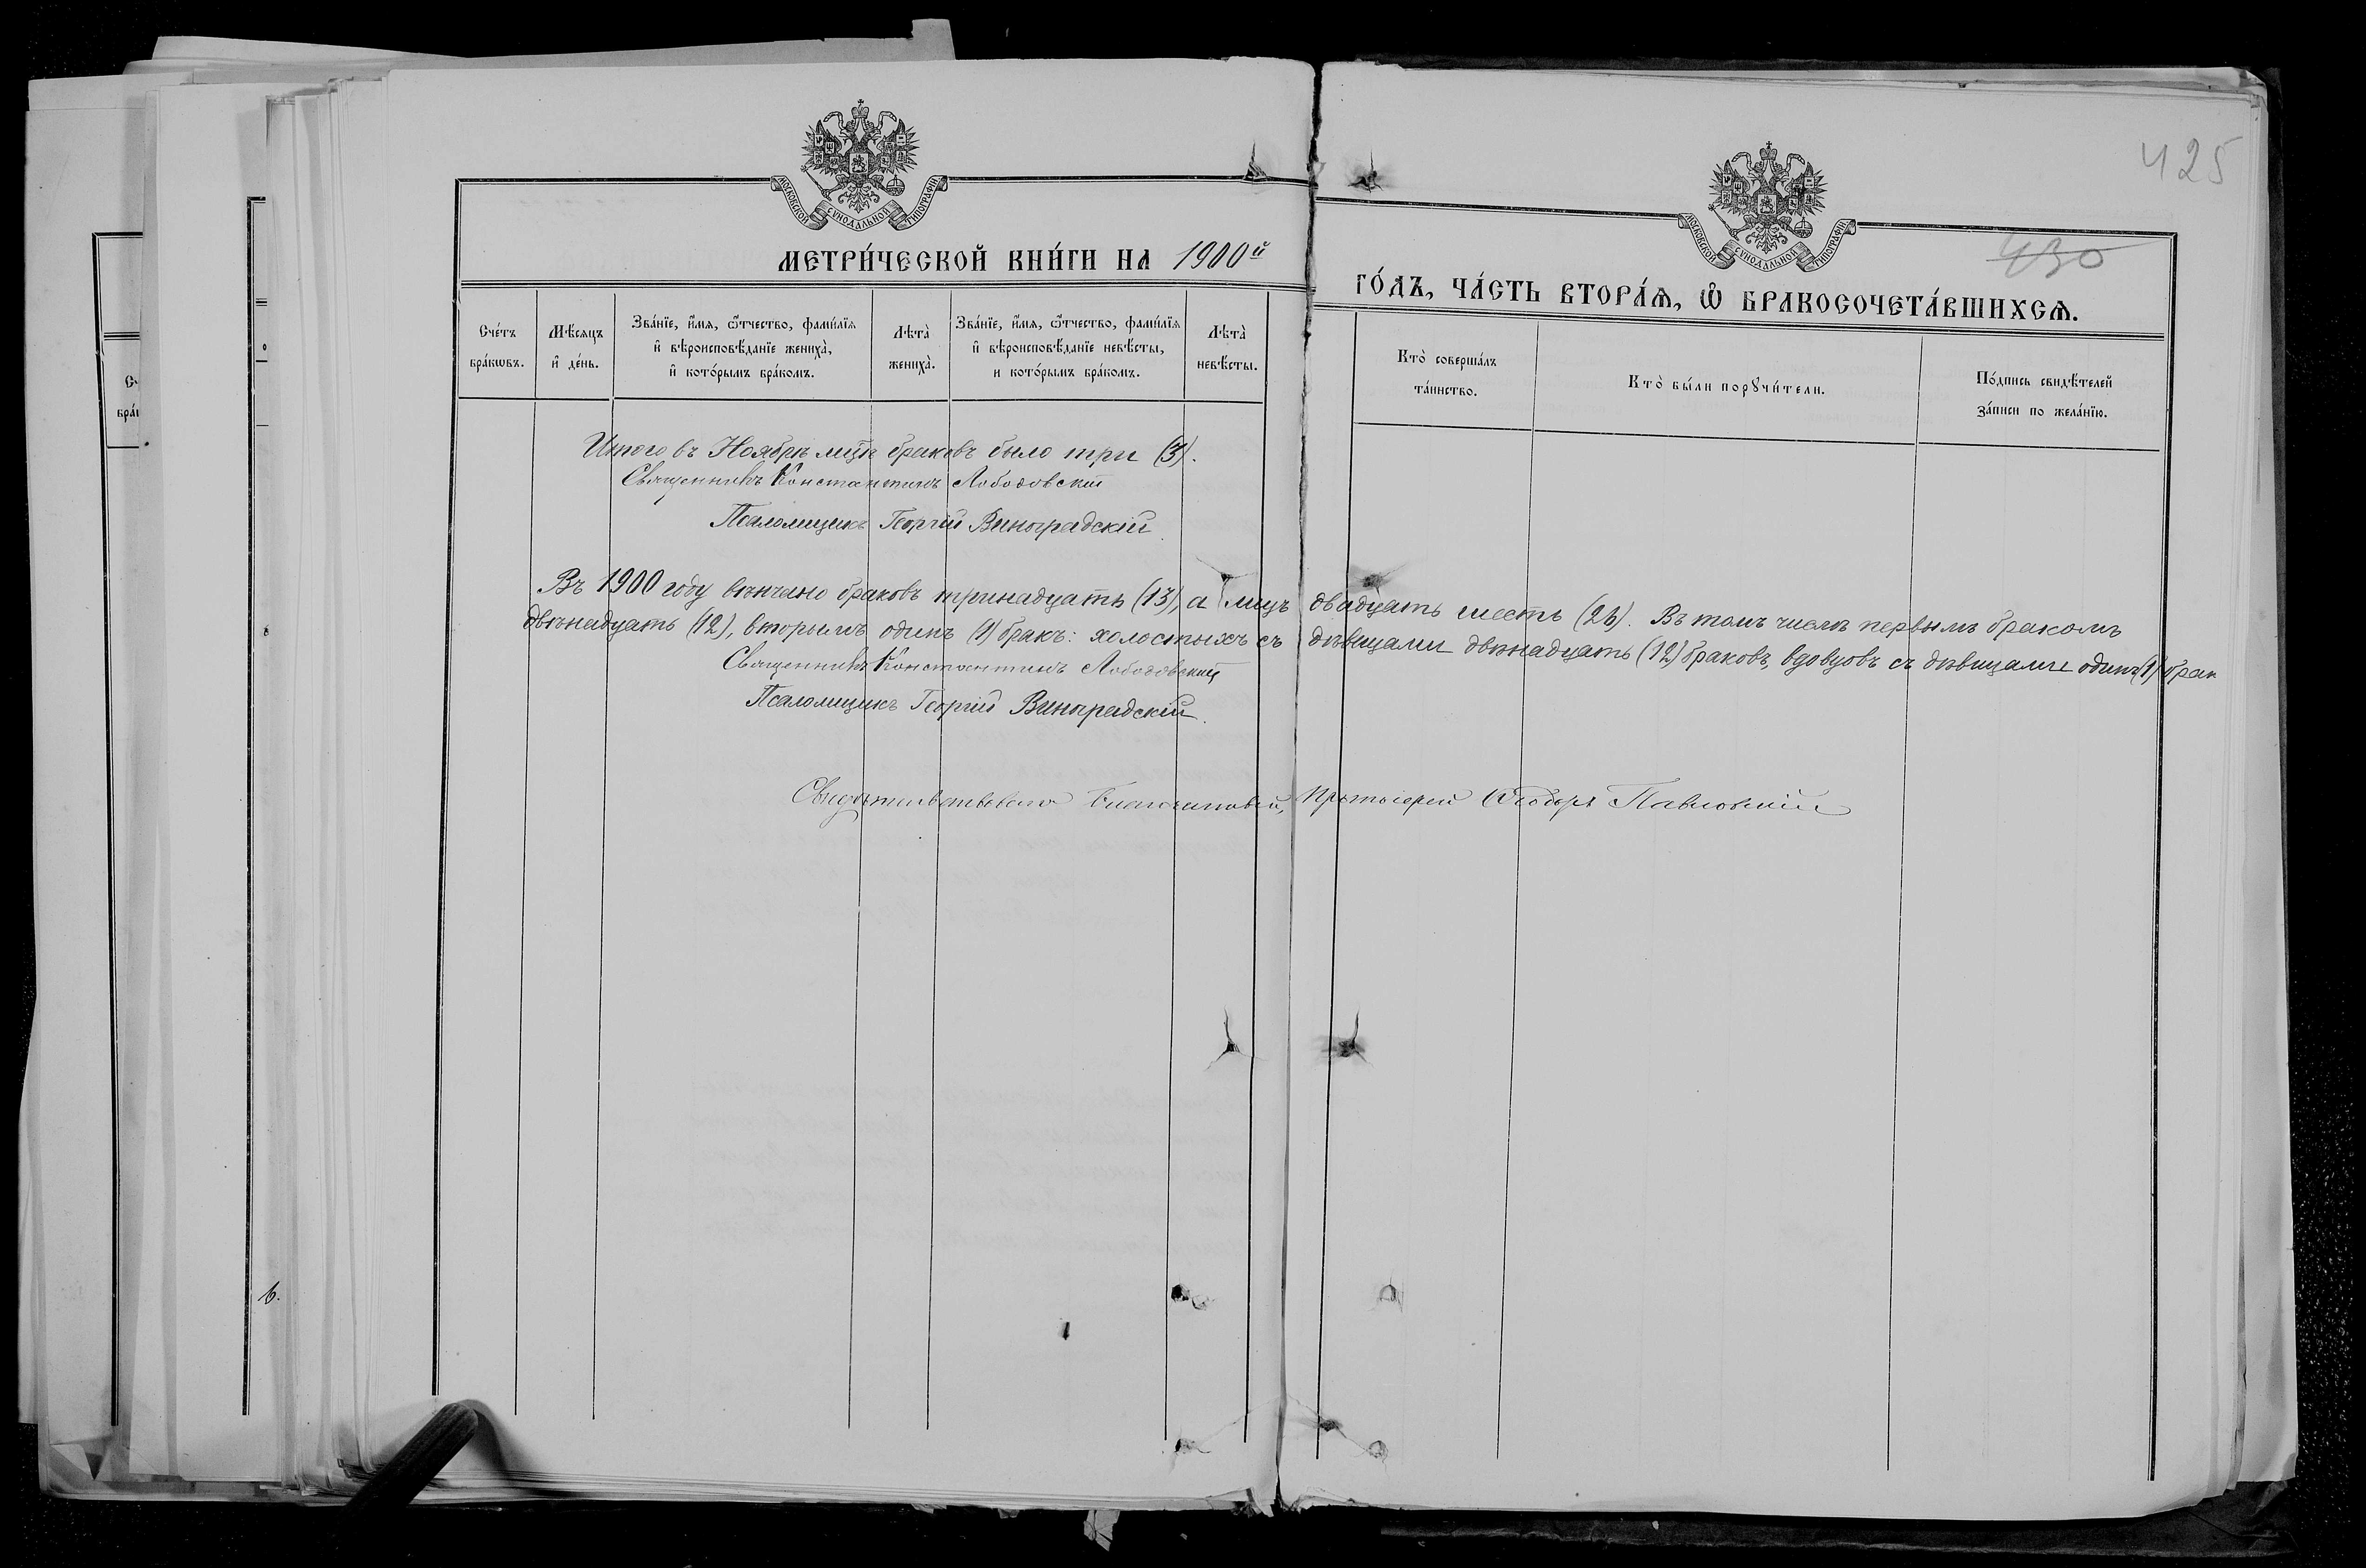 425
430
МОСКОВСКОЙ СУНОДАЛЬНОЙ ТИПОГРАФІИ
МОСКОВСКОЙ СУНОДАЛЬНОЙ ТИПОГРАФІИ
МЕТРИ́ЧЕСКОЙ КНИ́ГИ НА 1900й
ГО́ДЪ, ЧА́СТЬ ВТОРА́Ѧ, Ѽ БРАКОСОЧЕТА́ВШИХСѦ.
Сче́тъ бра́кѡвъ.
Мѣ́сѧцъ и҆ де́нь.
Зва́нїе, и҆́мѧ, ѻ҆́тчество, фами́лїѧ и҆ вѣроисповѣ́данїе жениха̀, и҆ кото́рымъ бра́комъ.
Лѣ́та̀ жениха̀.
Зва́нїе, и҆́мѧ, ѻ҆́тчество, фами́лїѧ и҆ вѣроисповѣ́данїе невѣ́сты, и кото́рымъ бра́комъ.
Лѣ́та̀ невѣ́сты.
Кто̀ соверша́лъ та́инство.
Кто̀ бы́ли порꙋчи́тели.
По́дпись свидѣ́телей за́писи по жела́нїю.
Итого въ Ноябрѣ мцѣ браковъ было три (3).
Священникъ Константинъ Лободовскій
Псаломщикъ Георгій Виноградскій.
Въ 1900 году вѣнчано браковъ тринадцать (13), а лицъ двадцать шесть (26). Въ томъ числѣ первымъ бракомъ
двѣнадцать (12), вторымъ одинъ (1) бракъ: холостыхъ съ дѣвицами двѣнадцать (12) браковъ, вдовцовъ съ дѣвицами одинъ (1) брак
Священникъ Константинъ Лободовскій
Псаломщикъ Георгій Виноградскій.
Свидѣтельствовалъ Благочинный, Протоіерей Ѳеодоръ Павловскій